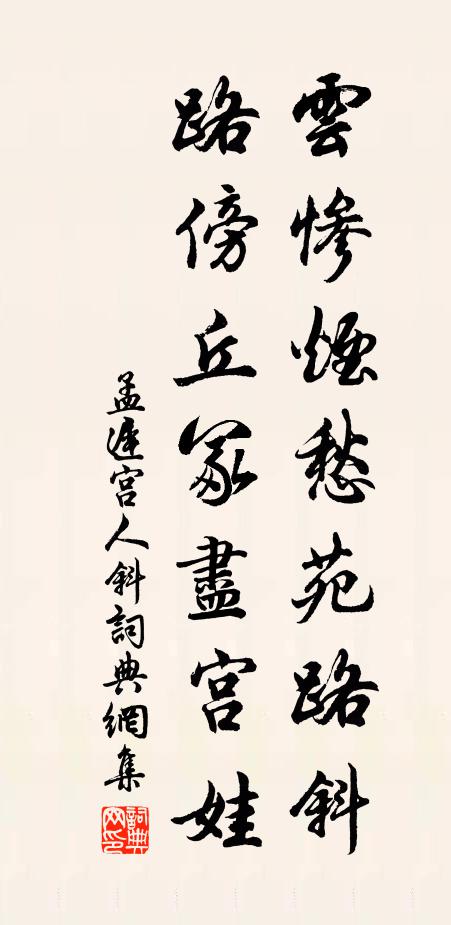 雲慘煙愁苑路斜
路傍丘冢盡宮娃
孟遲宮人斜詞典網集
詞典网印